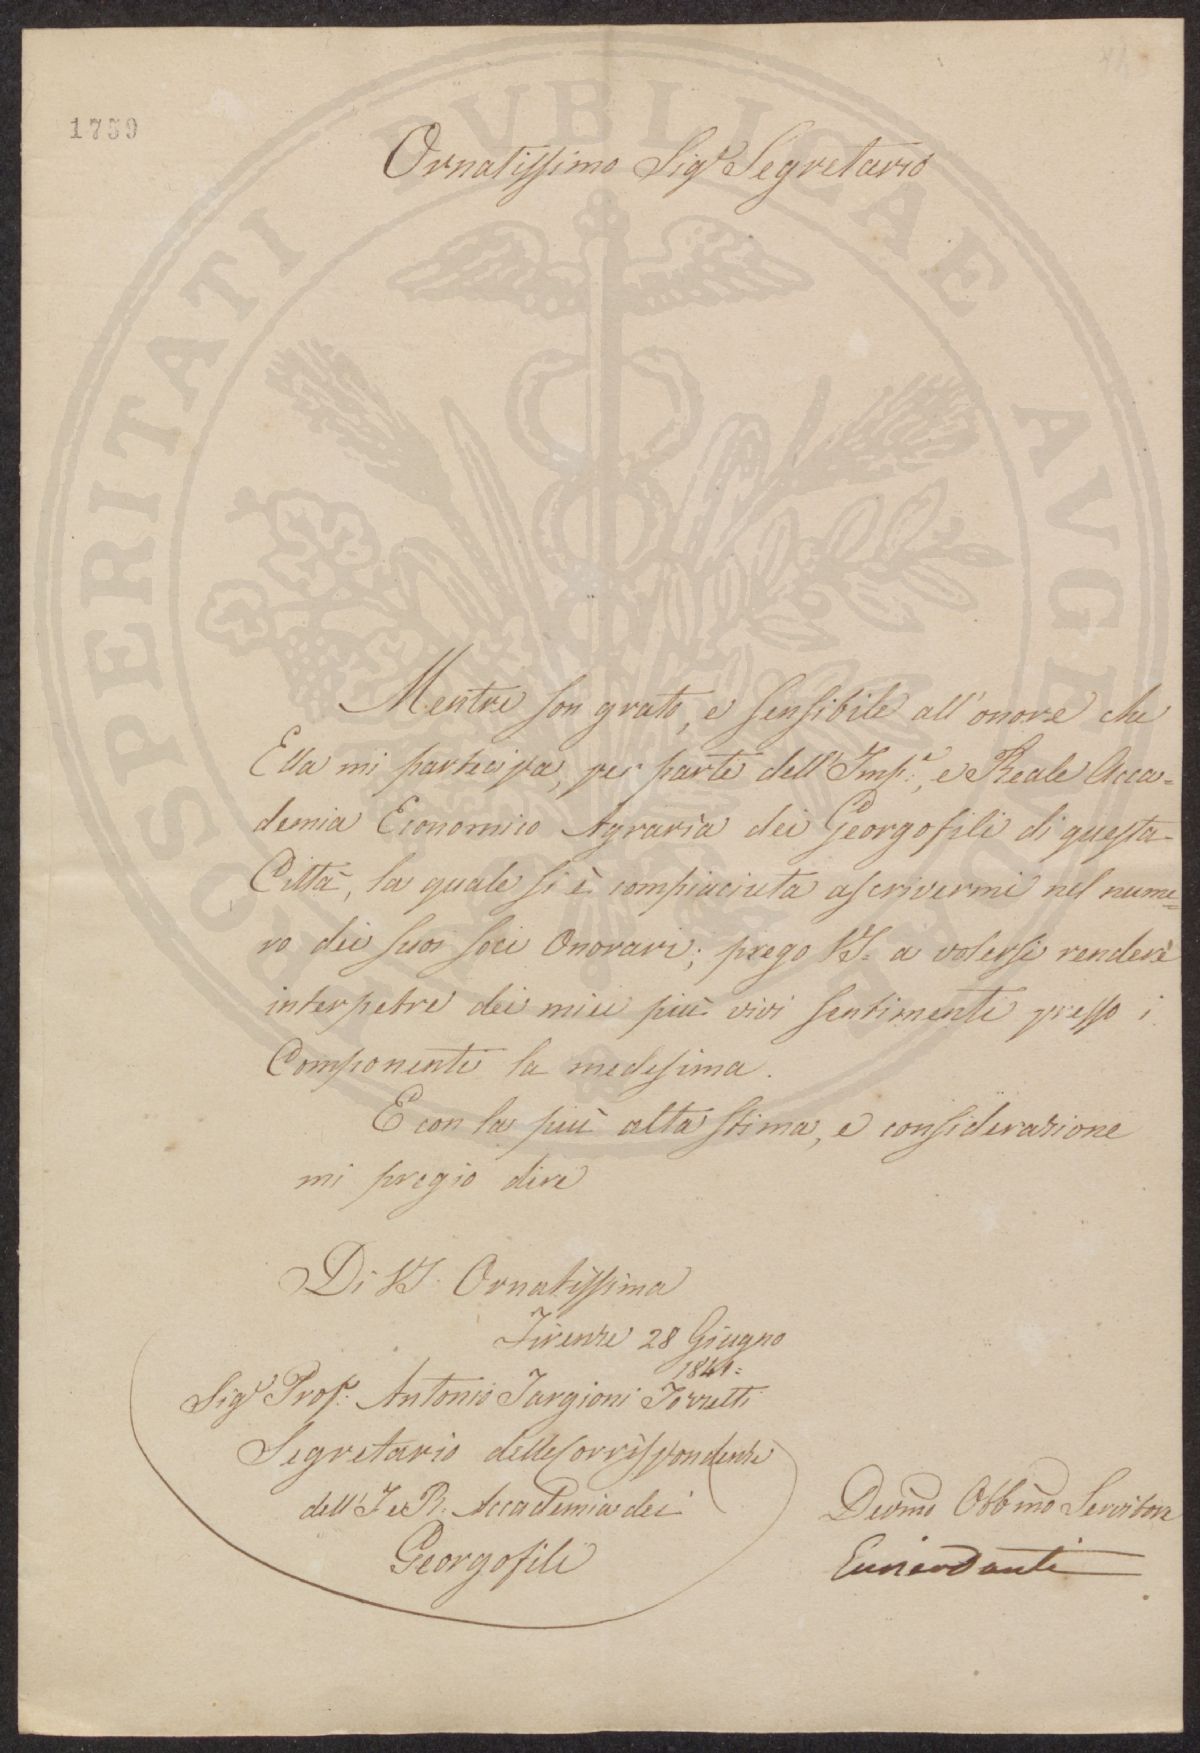 1739
Ornatissimo Sigr. Segretario
Mentre son grato, e sensibile all'onore che
Ella mi partecipa, per parte dell'Imp:e, e Reale Acca=
demia Economico Agraria dei Georgofili di questa
Città, la quale si è compiaciuta ascrivermi nel nume=
ro dei suoi Soci Onorari; prego VS: a volersi rendere
interpetre dei miei più vivi sentimenti presso i
Componenti la medesima.
E con la più alta stima, e considerazione
mi pregio dire
Di VS. Ornatissima
Firenze 28 Giugno
1841:
Sigr Profr: Antonio Targioni Tozzetti
Segretario delle Corrispondenze
dell'I e R: Accademia dei
Georgofili
Devmo Obbmo Servitore
PROSPERITATI PVBLICAE AVGENDAE